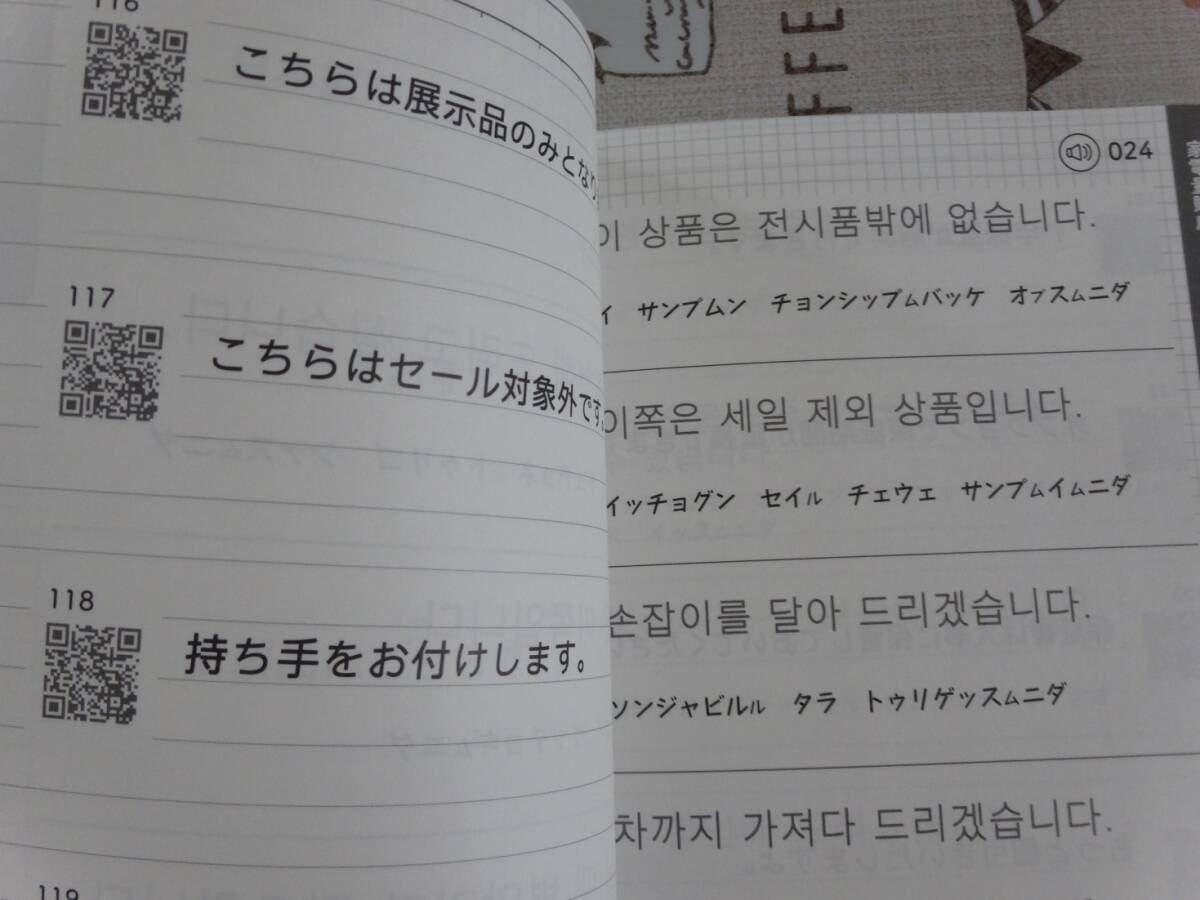 116
こちらは展示品のみとなり
117
こちらはセール対象外です
118
持ち手をお付けします。
119
FFE
024
이 상품은 전시품밖에 없습니다.
ィ サンプムン チョンシップムバッケ オプスムニダ
이쪽은 세일 제외 상품입니다.
イッチョグン セイル チェウェ サンプムイムニダ
손잡이를 달아 드리겠습니다.
ソンジャビルル タラ トゥリゲッスムニダ
차까지 가져다 드리겠습니다.